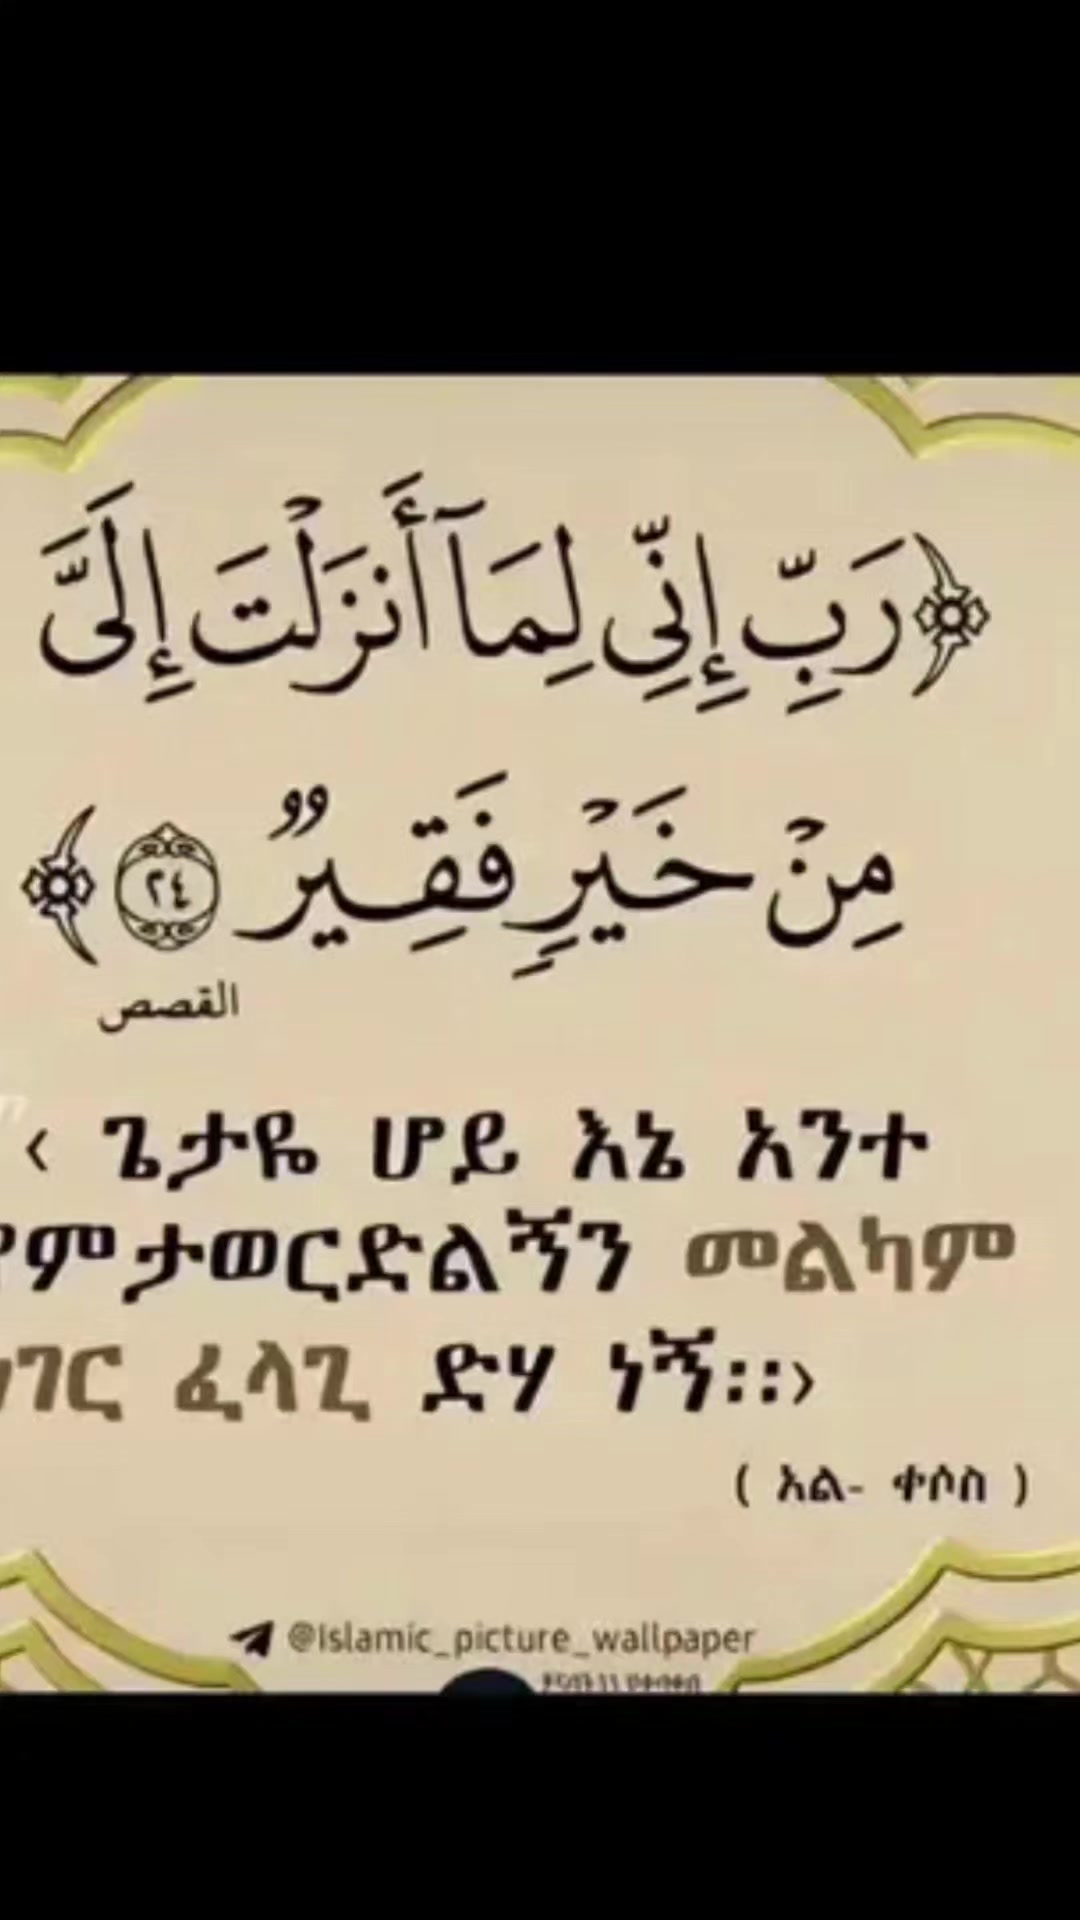 ﴿رَبِّ إِنِّي لِمَآ أَنزَلْتَ إِلَىَّ
مِنْ خَيْرٍ فَقِيرٌ ٢٤﴾
القصص
‹ ጌታዬ ሆይ እኔ አንተ
የምታወርድልኝን መልካም
ነገር ፈላጊ ድሃ ነኝ፡፡›
( አል- ቀሶስ )
@Islamic_picture_wallpaper